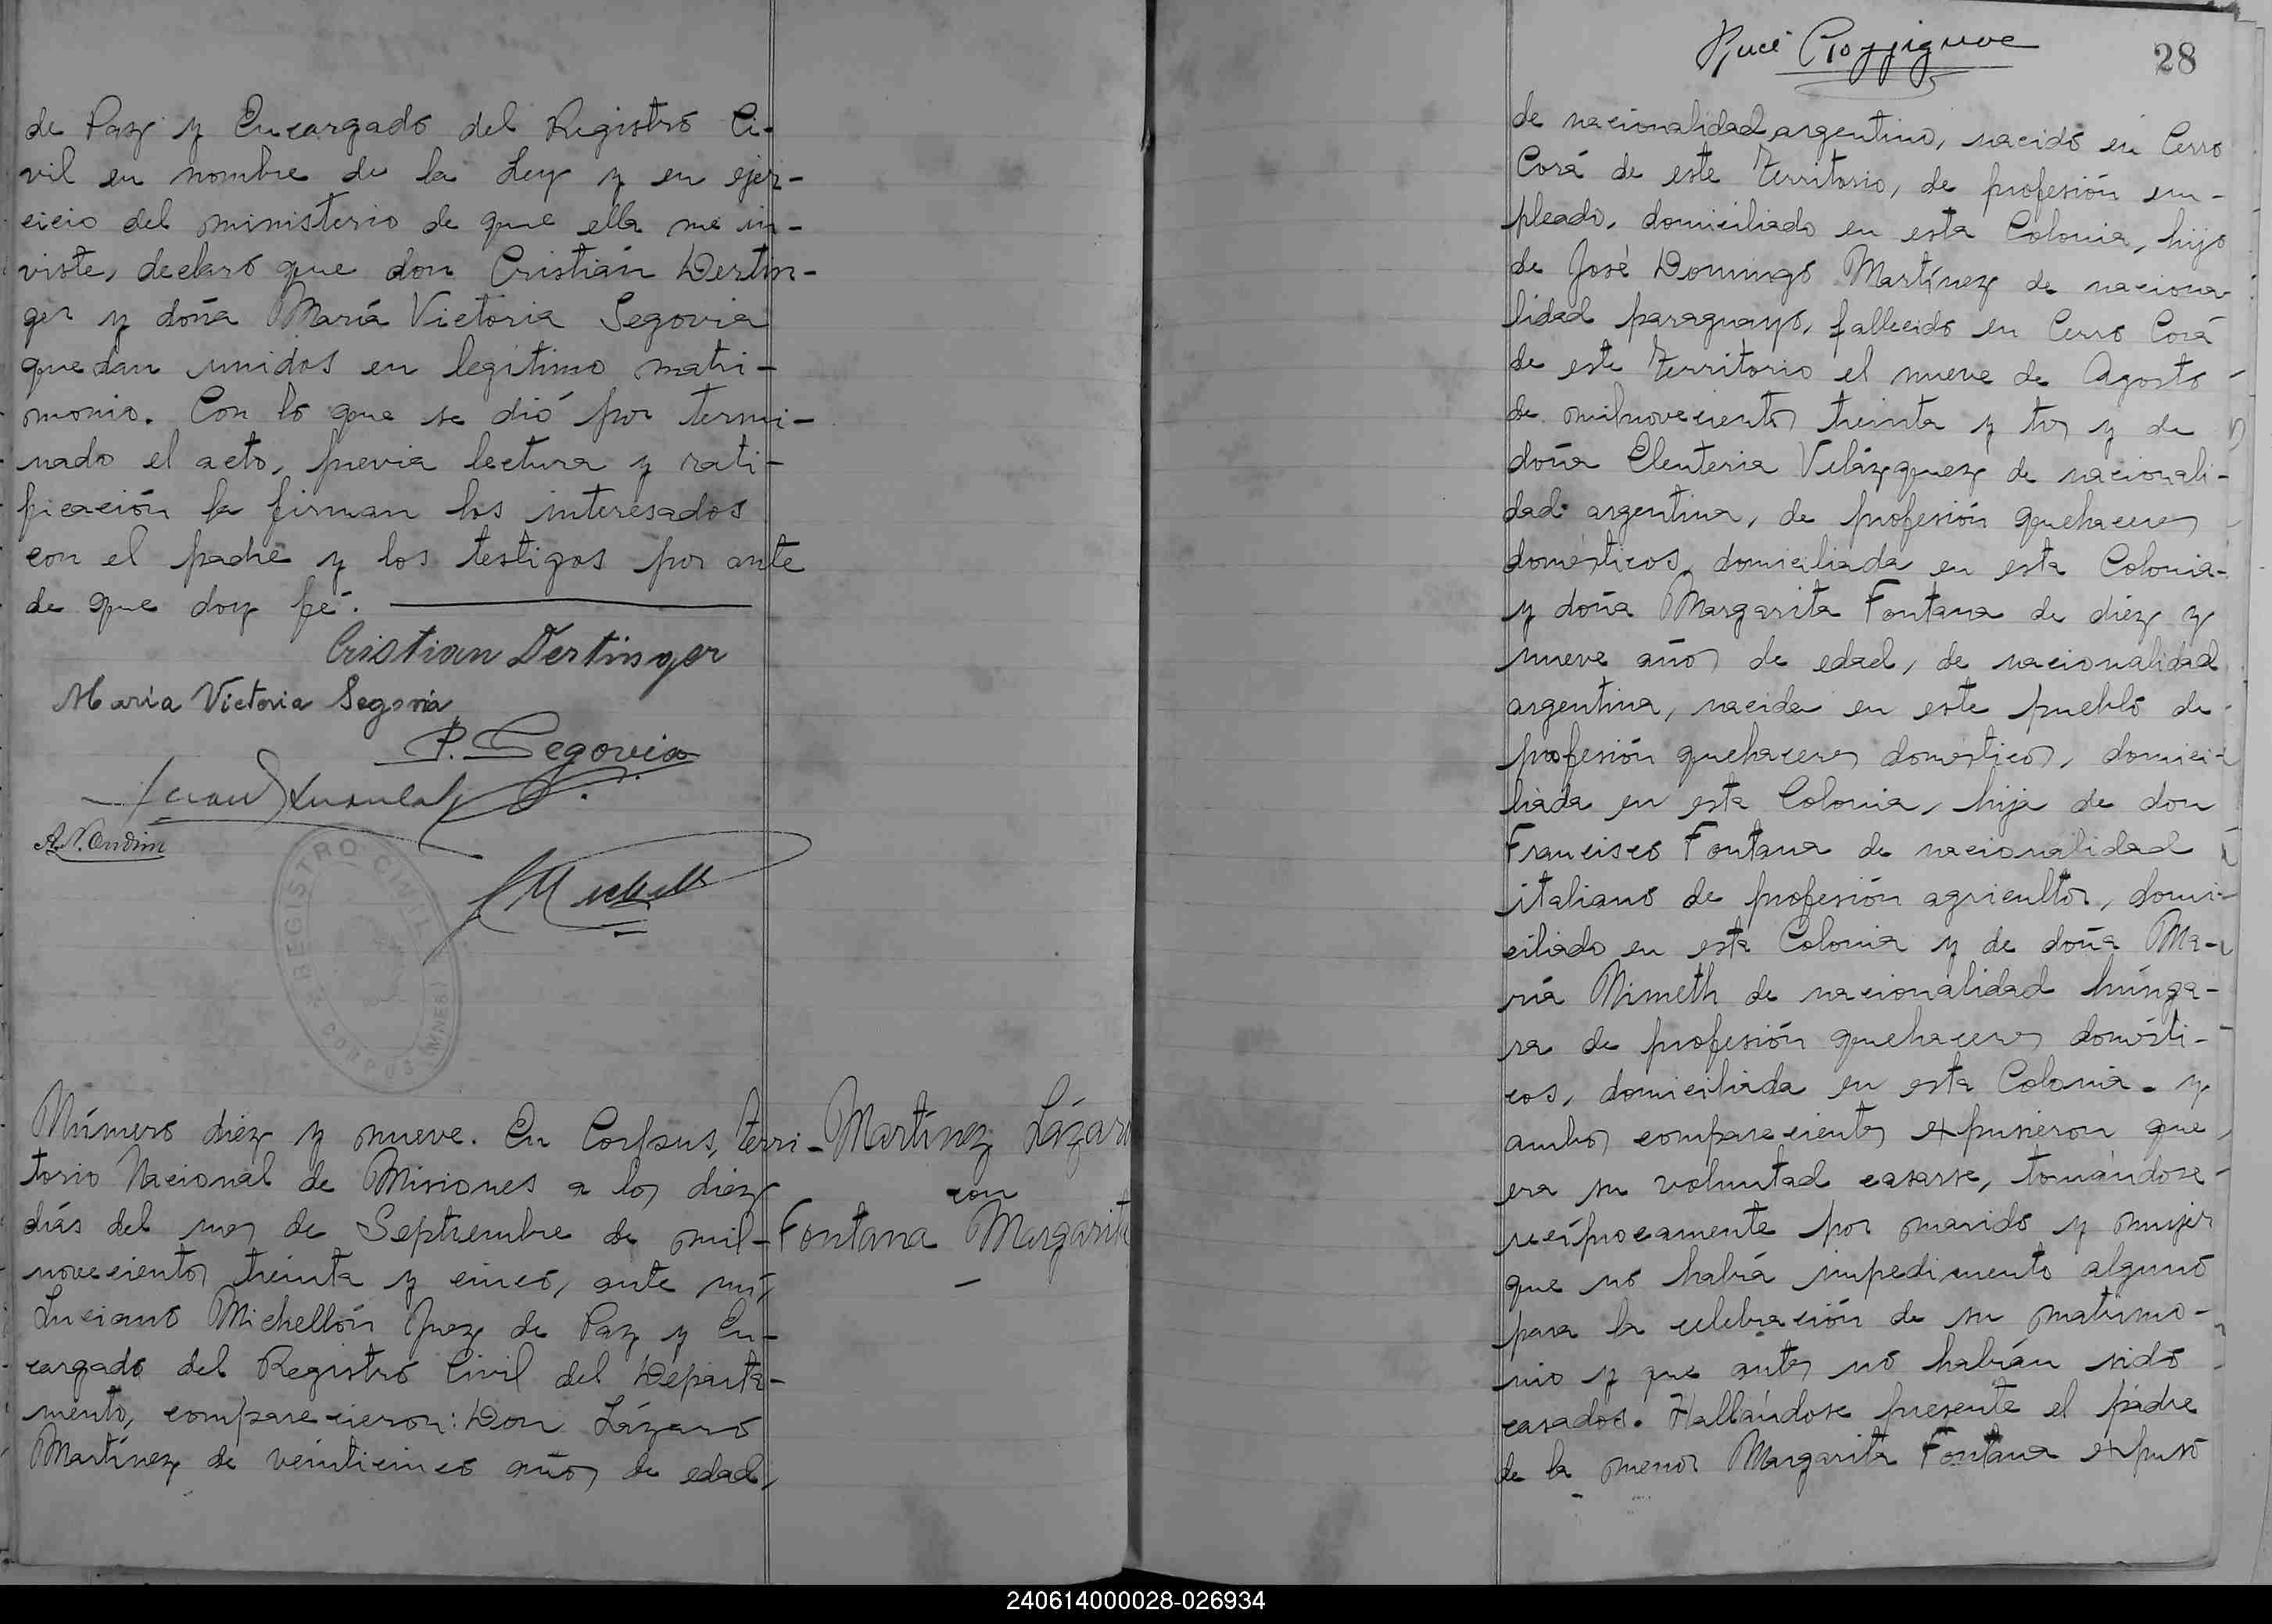 de Paz y Encargado del Registro Ci-
vil en nombre de la Ley y en ejer-
cicio del ministerio de que ella me in-
viste, declaro que don Cristián Dertin-
ger y doña María Victoria Segovia
quedan unidos en legítimo matri-
monio. Con lo que se dió por termi-
nado el acto, previa lectura y rati-
ficación la firman los interesados
con el padre y los testigos por ante
de que doy fé.
Cristian Dertinger
María Victoria Segovia
P. Segovia
REGISTRO CIVIL
CORPUS (MNES)
Número diez y nueve. En Corpus, Terri-
torio Nacional de Misiones a los diez
días del mes de Septiembre de mil-
novecientos treinta y cinco, ante mí,
Luciano Michellón Juez de Paz y En-
cargado del Registro Civil del Departa-
mento, comparecieron: Don Lázaro
Martínez de veinticinco años de edad,
Martínez Lázaro
con
Fontana Margarita
28
de nacionalidad argentino, nacido en Cerro
Corá de este Territorio, de profesión em-
pleado, domiciliado en esta Colonia, hijo
de José Domingo Martínez de naciona-
lidad paraguayo, fallecido en Cerro Corá
de este Territorio el nueve de Agosto
de milnovecientos treinta y tres y de
doña Eleuteria Velázquez de nacionali-
dad argentina, de profesión quehaceres
domésticos, domiciliada en esta Colonia-
y doña Margarita Fontana de diez y
nueve años de edad, de nacionalidad
argentina, nacida en este pueblo de
profesión quehaceres domésticos, domici-
liada en esta Colonia, hija de don
Francisco Fontana de nacionalidad
italiano de profesión agricultor, domi-
ciliado en esta Colonia y de doña Ma-
ría Nimeth de nacionalidad húnga-
ra de profesión quehaceres domésti-
cos, domiciliada en esta Colonia. y
ambos comparecientes expusieron que
era su voluntad casarse, tomándose
recíprocamente por marido y mujer
que no había impedimento alguno
para la celebración de su matrimo-
nio y que antes no habían sido
casados. Hallándose presente el padre
de la menor Margarita Fontana expuso
240614000028-026934